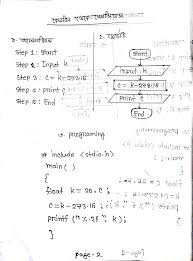 কেলভিন থেকে সেলসিয়াস
১. অ্যালগরিদম
Step 1: Start
Step 2: Input k
Step 3: c = k-273.16
Step 4: print c
Step 5: End
২. ফ্লোচার্ট
Start
Input k
c = k-273.16
Print c
End
৩. programing
include <stdio.h>
main( )
{
float k = 20, c;
c = k-273.16;
printf ("% 2f", k);
}
page-2